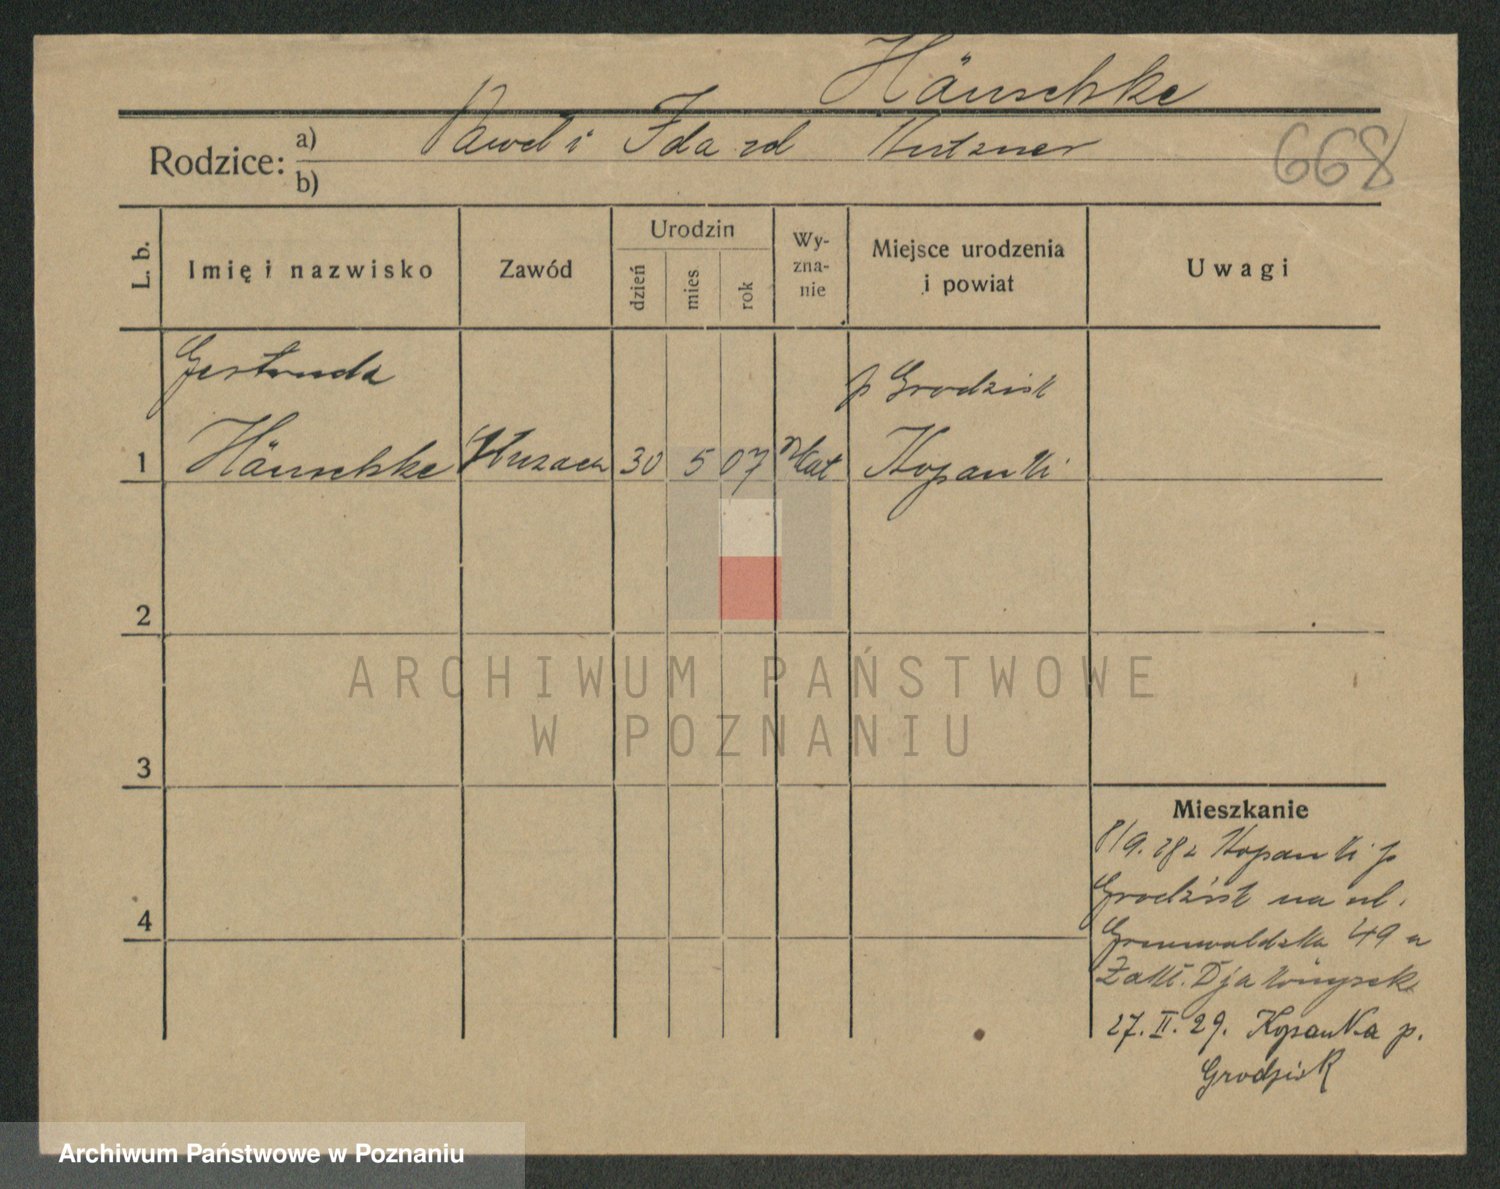 Häuschke
Rodzice: a) Paweł i Ida zd Kutzner
b)
668
L. b.
Imię i nazwisko
Zawód
Urodzin
dzień
mies
rok
Wy-
zna-
nie
Miejsce urodzenia
i powiat
Uwagi
Gertruda
p Grodzisk
1 Häuschke 30 5 07 Kopanki
2
3
4
ARCHIWUM PAŃSTWOWE
W POZNANIU
Mieszkanie
8/9. 28 z Kopanki p
Grodzisk na ul.
Grunwaldzka 49 a
Zakł.
27. II. 29. Kopanka p.
Grodzisk
Archiwum Państwowe w Poznaniu